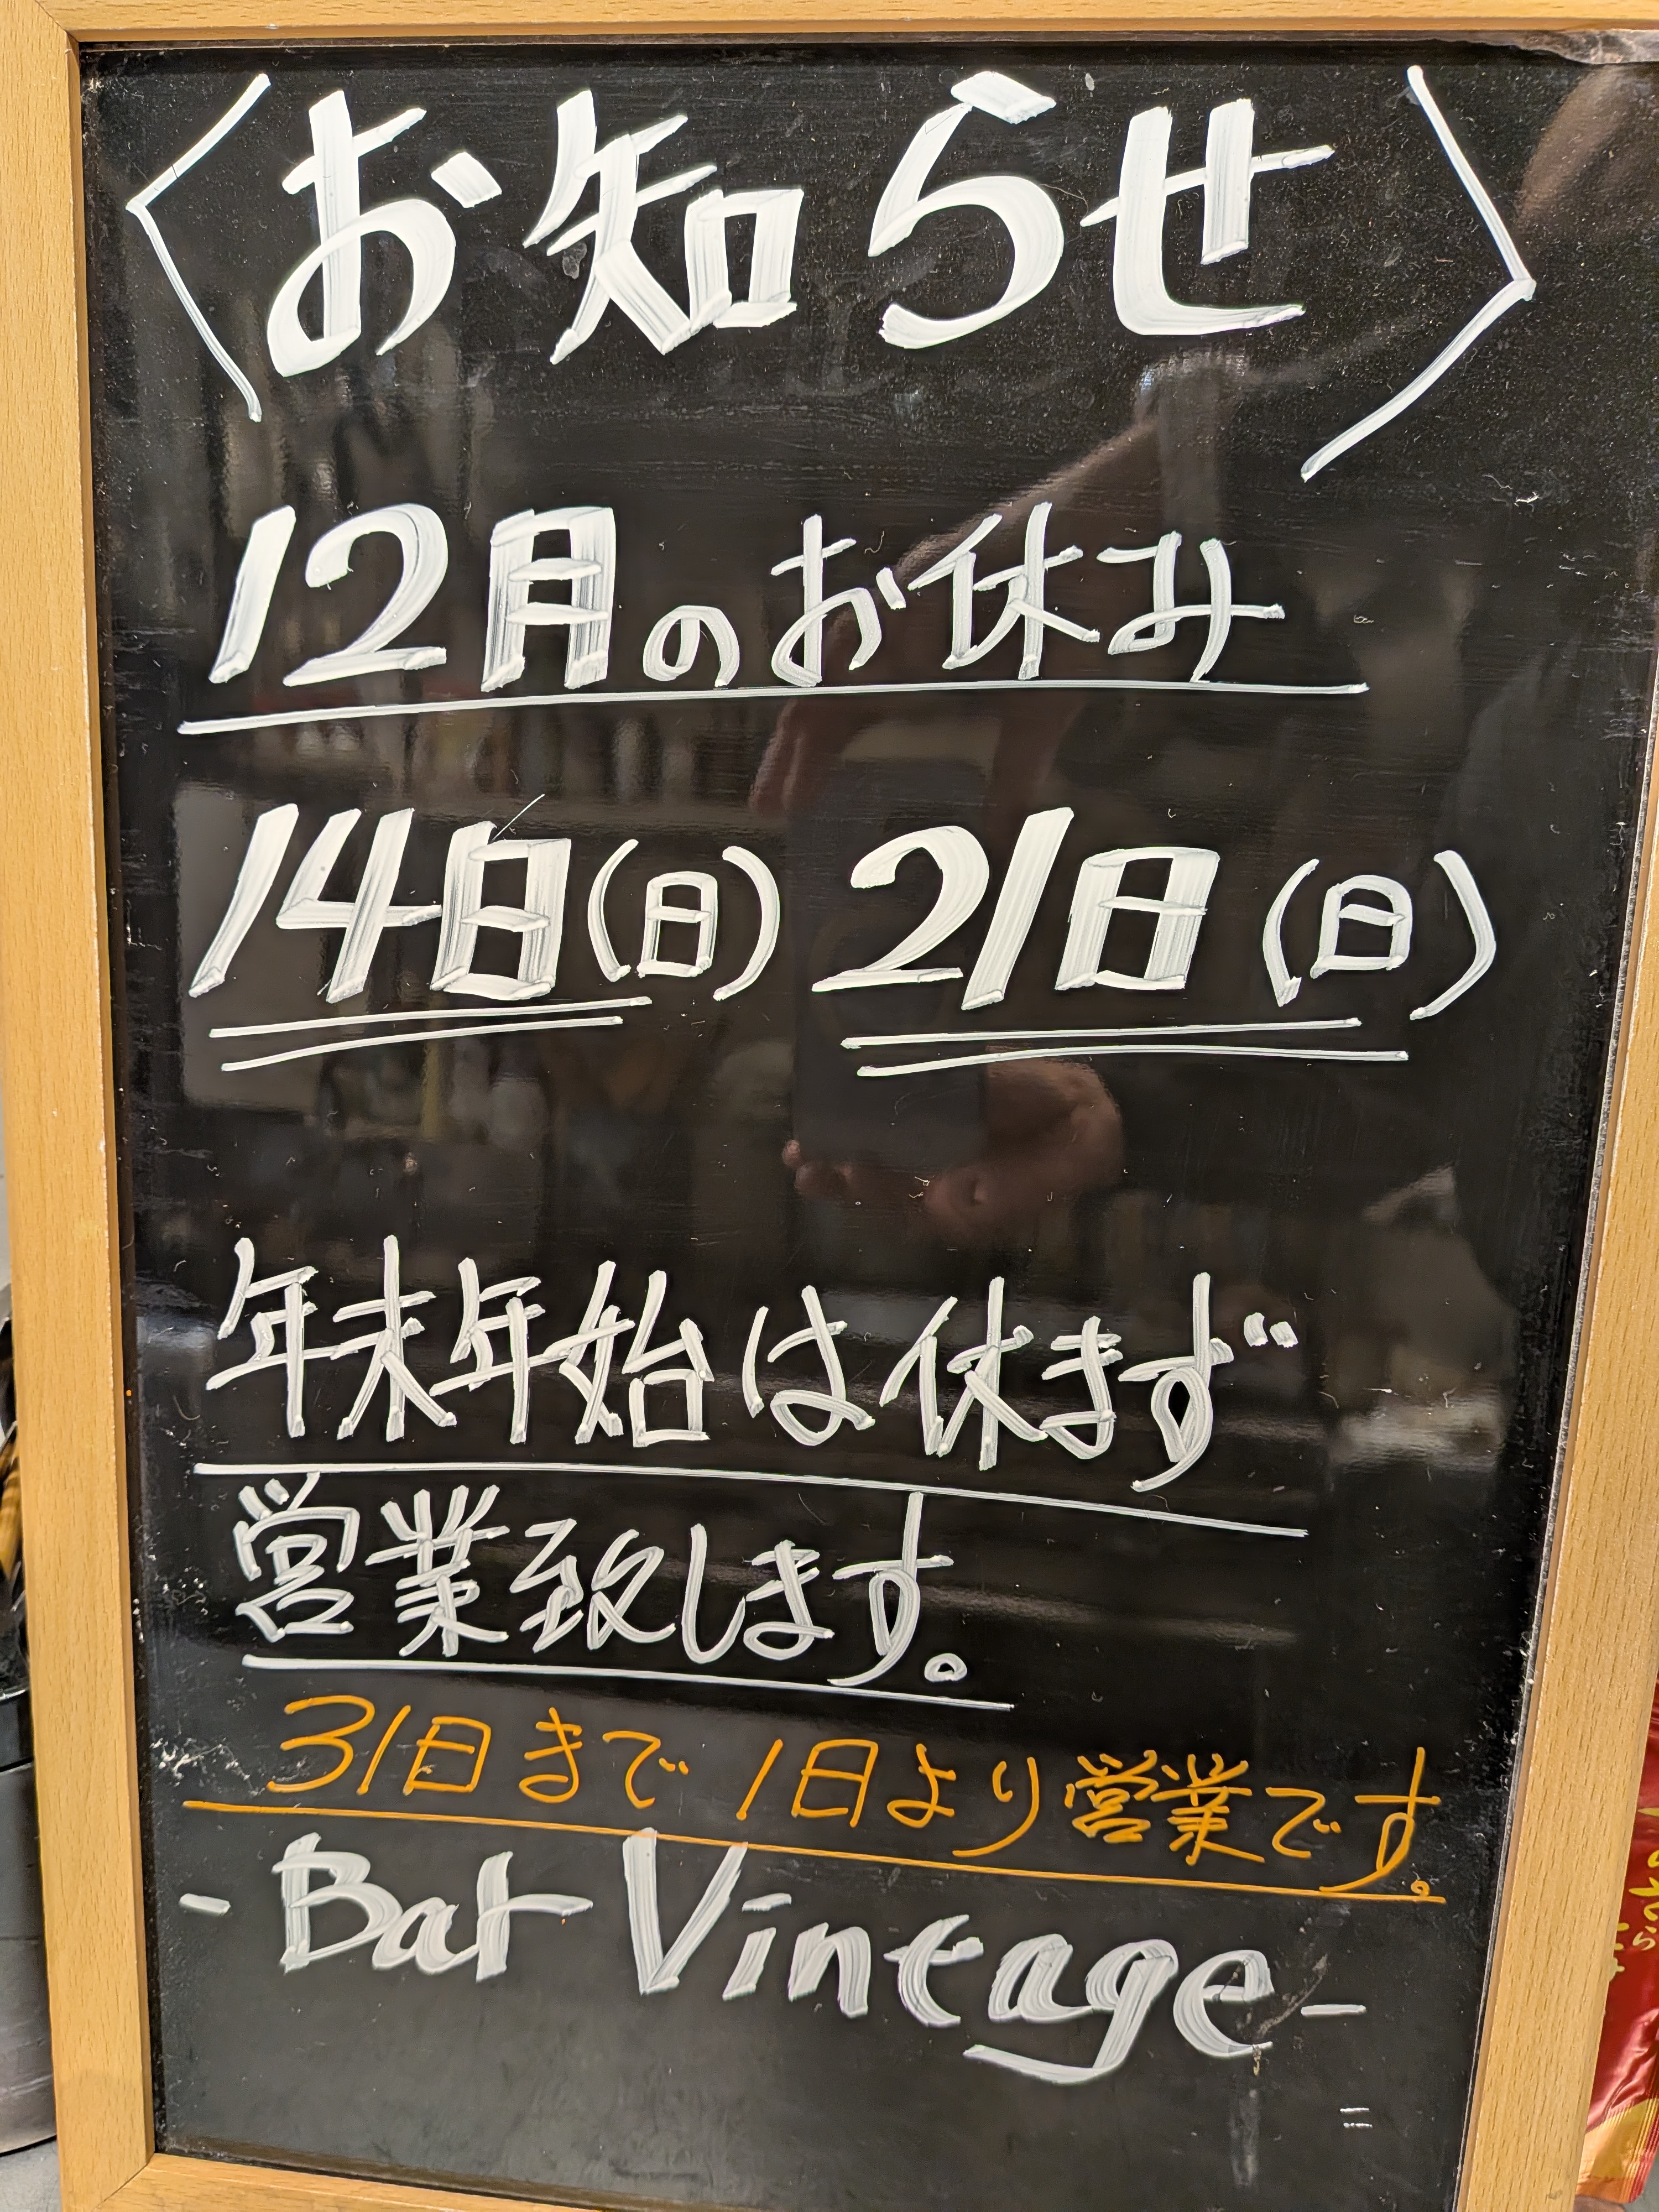 〈お知らせ〉
12月のお休み
14日(日) 21日(日)
年末年始は休まず
営業致します。
31日まで 1日より営業です。
- Bar Vintage -